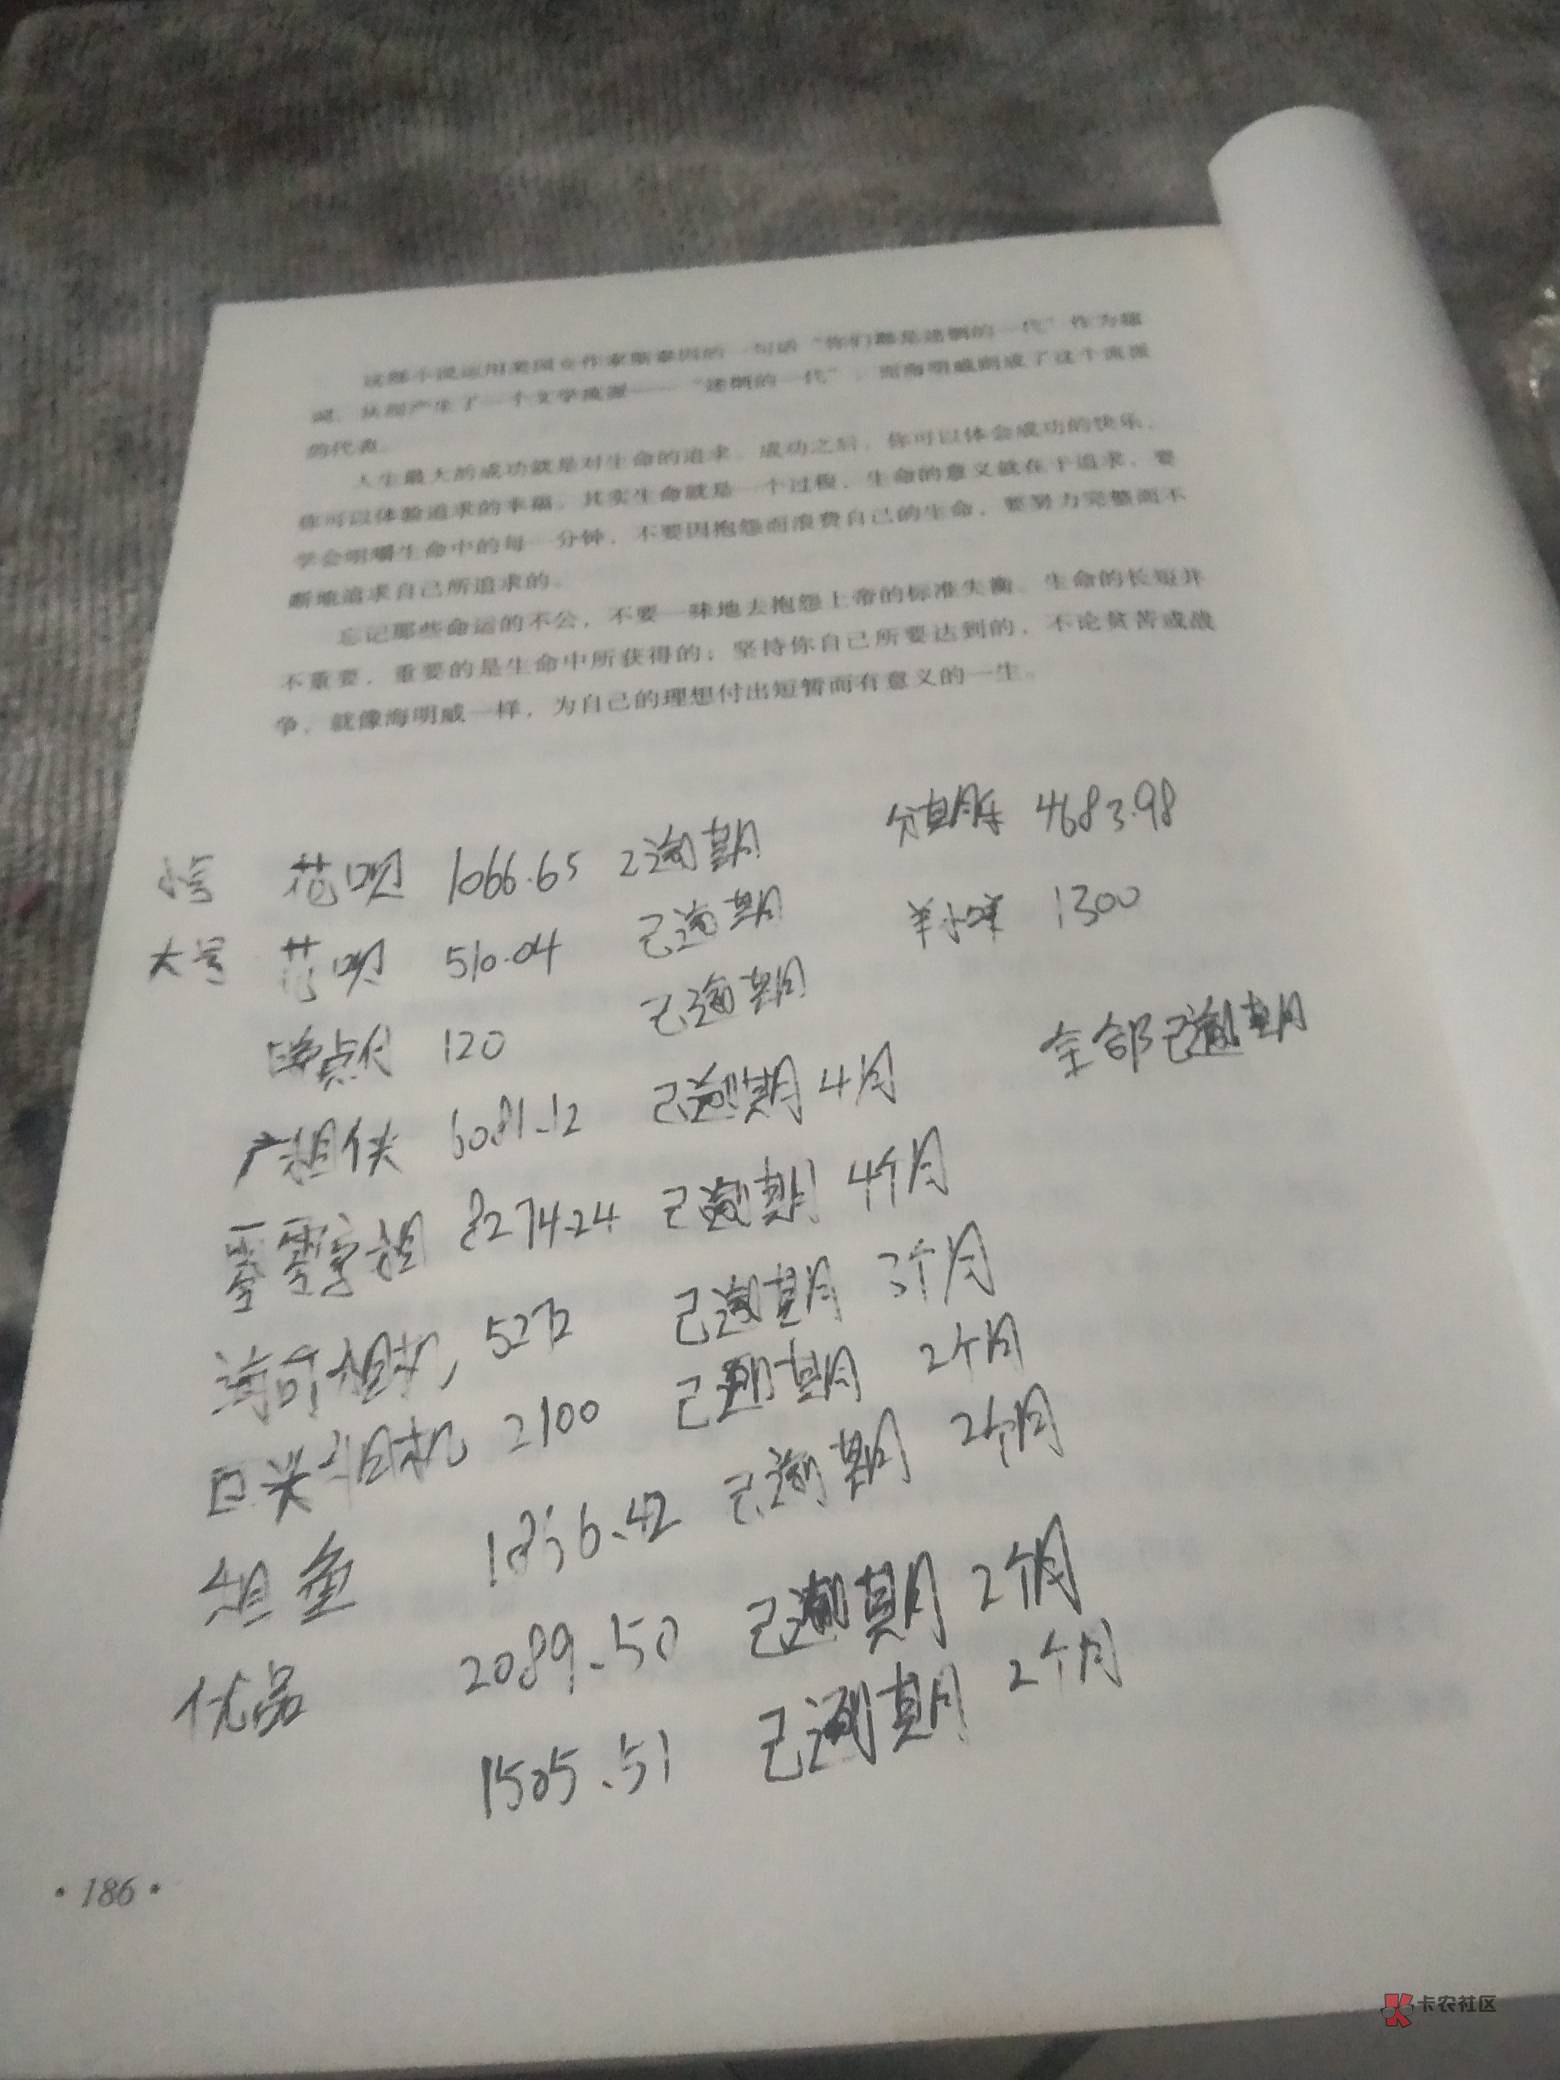 这部小说运用美国女作家斯泰因的一句话“你们都是迷惘的一代”作为题
词，从而产生了一个文学流派——“迷惘的一代”，而海明威则成了这个流派
的代表。
人生最大的成功就是对生命的追求。成功之后，你可以体会成功的快乐，
你可以体验追求的幸福。其实生命就是一个过程，生命的意义就在于追求，要
学会咀嚼生命中的每一分钟，不要因抱怨而浪费自己的生命，要努力完整而不
断地追求自己所追求的。
忘记那些命运的不公，不要一味地去抱怨上帝的标准失衡。生命的长短并
不重要，重要的是生命中所获得的；坚持你自己所要达到的，不论贫苦或战
争，就像海明威一样，为自己的理想付出短暂而有意义的一生。
小号 花呗 1066.65 已逾期 分期乐 4683.98
大号 花呗 510.04 已逾期 羊小咩 1300
点付 120 已逾期 全部已逾期
租 6081.12 已逾期4月
享租 8274.24 已逾期 4个月
租机 5272 已逾期 3个月
租机 2100 已逾期 2个月
租鱼 1856.42 已逾期 2个月
优品 2089.50 已逾期 2个月
1505.51 已逾期 2个月
·186·
卡农社区